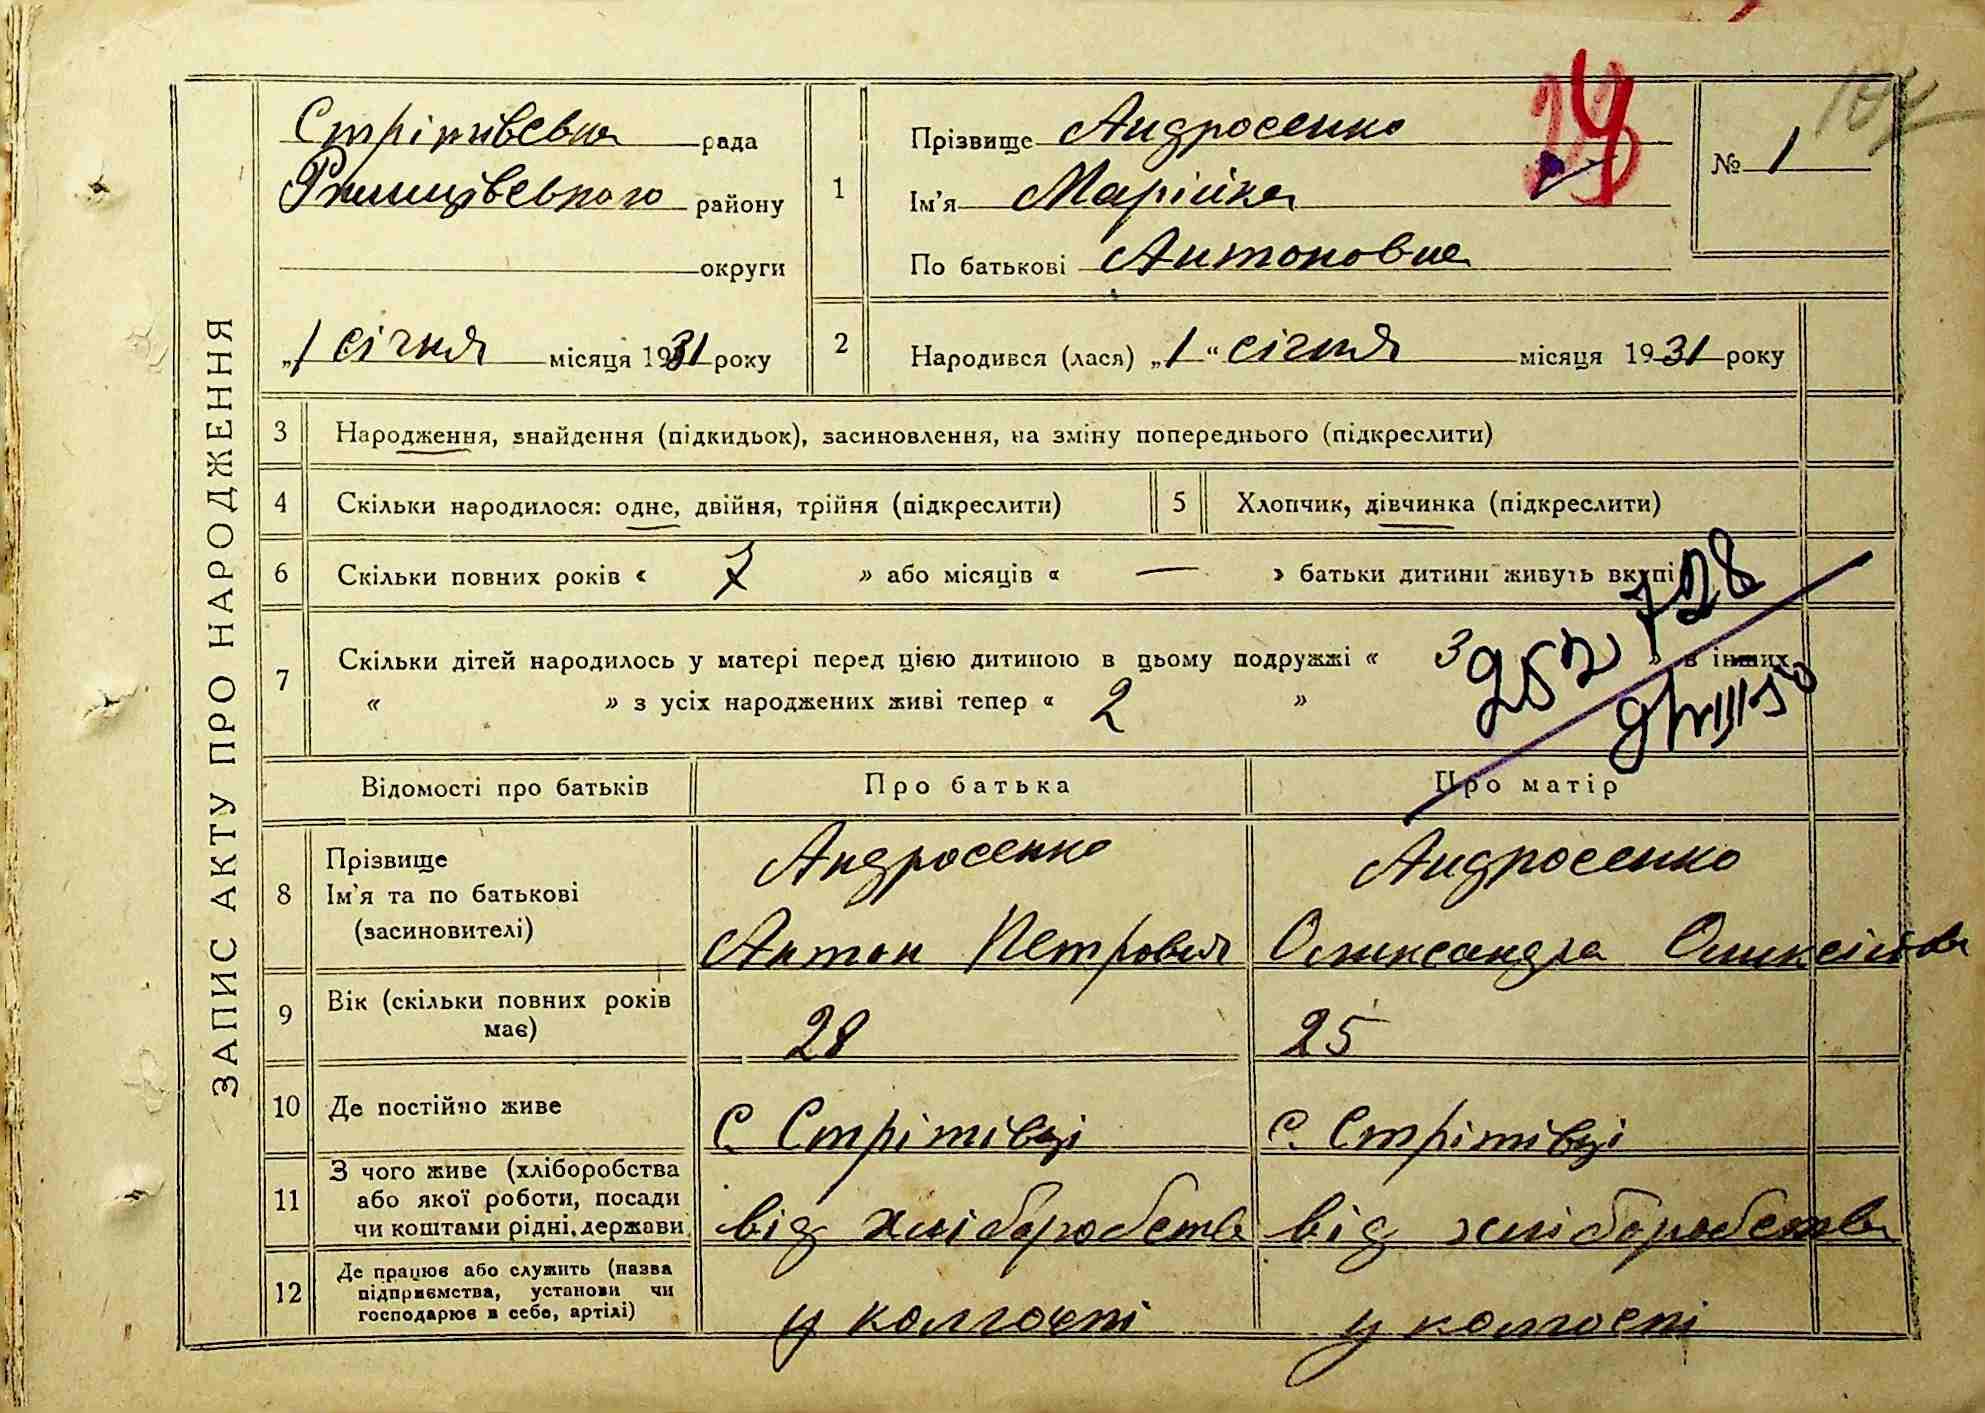 ЗАПИС АКТУ ПРО НАРОДЖЕННЯ
Стрітивська рада
Ржищівського району
округи
„1 січня місяця 1931 року
1
Прізвище Андросенко
Ім'я Марійка
По батькові Антоновна
№ 1
107
2
Народився (лася) „1“ січня місяця 1931 року
3 Народження, знайдення (підкидьок), засиновлення, на зміну попереднього (підкреслити)
4 Скільки народилося: одне, двійня, трійня (підкреслити)
5 Хлопчик, дівчинка (підкреслити)
6 Скільки повних років « 7 » або місяців « — » батьки дитини живуть вкупі
7 Скільки дітей народилось у матері перед цією дитиною в цьому подружжі « 3 » в інших
« » з усіх народжених живі тепер « 2 »
Відомості про батьків Про батька Про матір
8 Прізвище
Ім'я та по батькові
(засиновителі)
Андросенко
Антон Петрович
Андросенко
Олександра
9 Вік (скільки повних років
має)
28
25
10 Де постійно живе
с. Стрітівці
с. Стрітівці
11 З чого живе (хліборобства
або якої роботи, посади
чи коштами рідні, держави
від хліборобств
від хліборобства
12 Де працює або служить (назва
підприємства, установи чи
господарює в себе, артілі)
у колгоспі
у колгоспі